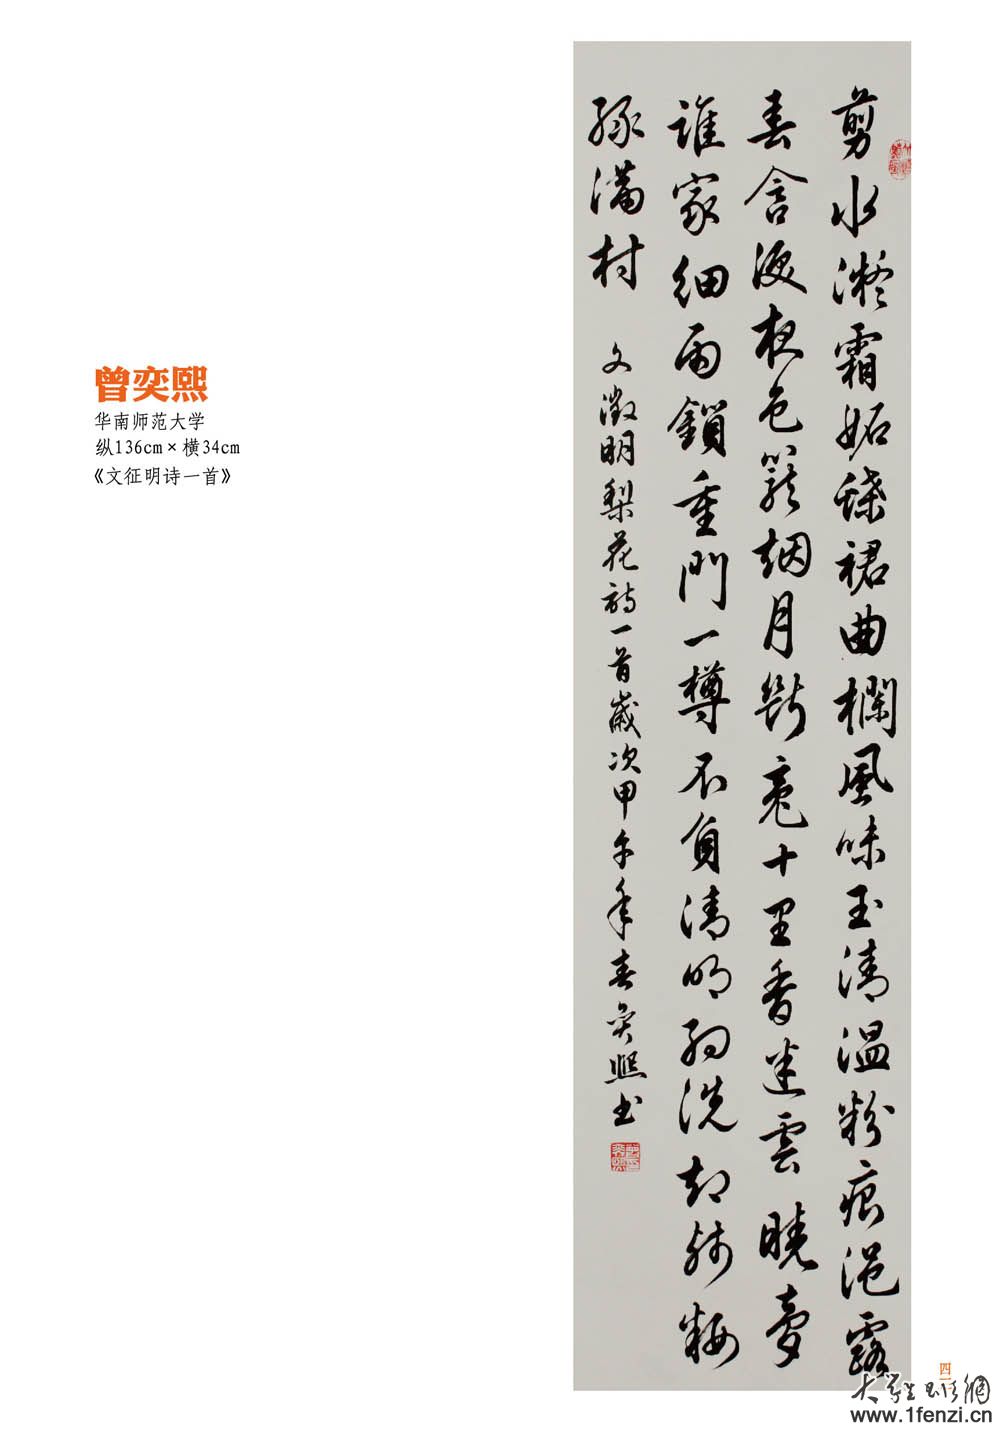 曾奕熙
华南师范大学
纵136cm×横34cm
《文征明诗一首》
剪水凝霜妬蝶裙曲欄風味玉清温粉痕浥露
春含淚夜色籠烟月斷魂十里香迷雲曉夢
誰家細雨鎖重門一樽不負清明約洗却殘粧
綠滿村 文徵明梨花詩一首歲次甲午年春奕熙书
大学生书法網
www.1fenzi.cn